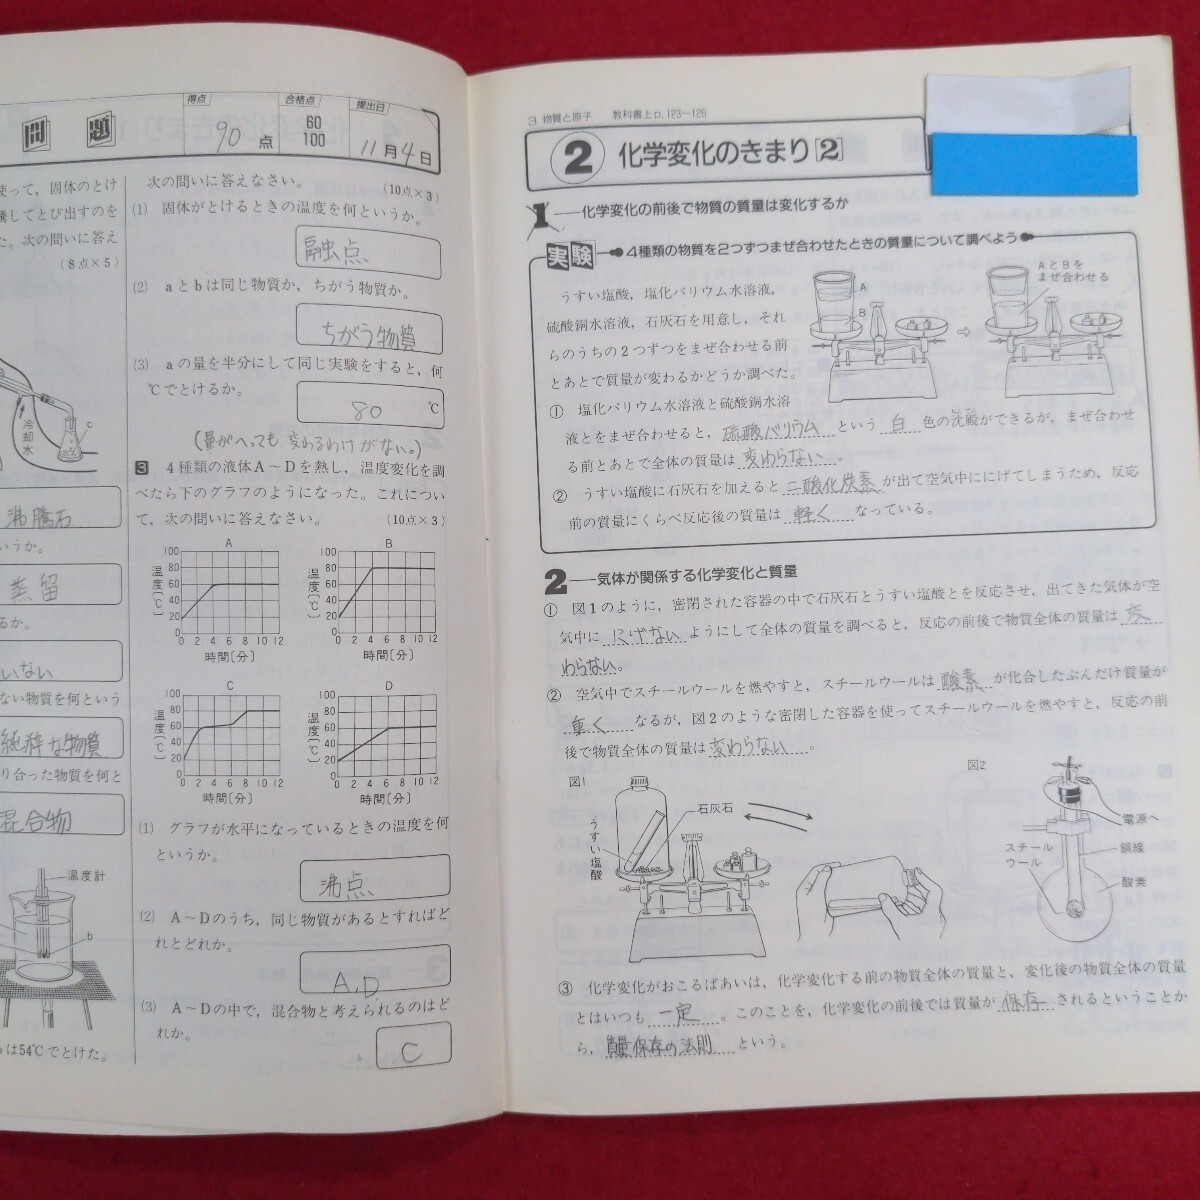 問題
得点
90点
合格点
60
100
提出日
11月4日
使って，固体のとけ
騰してとび出すのを
た。次の問いに答え
(8点×5)
冷却水
c
沸騰石
いうか。
蒸留
るか。
いない
ない物質を何という
純粋な物質
り合った物質を何と
混合物
温度計
b
は54℃でとけた。
次の問いに答えなさい。
(10点×3)
(1) 固体がとけるときの温度を何というか。
融点
(2) aとbは同じ物質か，ちがう物質か。
ちがう物質
(3) aの量を半分にして同じ実験をすると，何
℃でとけるか。
80 ℃
(量がへっても，変わるわけがない。)
3 4種類の液体A～Dを熱し，温度変化を調
べたら下のグラフのようになった。これについ
て，次の問いに答えなさい。 (10点×3)
A
100
80
60
40
20
0
温度〔℃〕
0 2 4 6 8 10 12
時間〔分〕
B
100
80
60
40
20
0
温度〔℃〕
0 2 4 6 8 10 12
時間〔分〕
C
100
80
60
40
20
0
温度〔℃〕
0 2 4 6 8 10 12
時間〔分〕
D
100
80
60
40
20
0
温度〔℃〕
0 2 4 6 8 10 12
時間〔分〕
(1) グラフが水平になっているときの温度を何
というか。
沸点
(2) A～Dのうち，同じ物質があるとすればど
れとどれか。
A,D
(3) A～Dの中で，混合物と考えられるのはど
れか。
C
3 物質と原子 教科書上p.123～126
2 化学変化のきまり[2]
1 化学変化の前後で物質の質量は変化するか
実験 4種類の物質を2つずつまぜ合わせたときの質量について調べよう
うすい塩酸，塩化バリウム水溶液，
硫酸銅水溶液，石灰石を用意し，それ
らのうちの2つずつをまぜ合わせる前
とあとで質量が変わるかどうか調べた。
A
B
⇨
AとBを
まぜ合わせる
① 塩化バリウム水溶液と硫酸銅水溶
液とをまぜ合わせると，硫酸バリウムという白色の沈殿ができるが，まぜ合わせ
る前とあとで全体の質量は変わらない。
② うすい塩酸に石灰石を加えると二酸化炭素が出て空気中ににげてしまうため，反応
前の質量にくらべ反応後の質量は軽くなっている。
2 気体が関係する化学変化と質量
① 図1のように，密閉された容器の中で石灰石とうすい塩酸とを反応させ，出てきた気体が空
気中ににげないようにして全体の質量を調べると，反応の前後で物質全体の質量は変
わらない。
② 空気中でスチールウールを燃やすと，スチールウールは酸素が化合したぶんだけ質量が
重くなるが，図2のような密閉した容器を使ってスチールウールを燃やすと，反応の前
後で物質全体の質量は変わらない。
図1
うすい塩酸
石灰石
図2
電源へ
スチール
ウール
銅線
酸素
③ 化学変化がおこるばあいは，化学変化する前の物質全体の質量と，変化後の物質全体の質量
とはいつも一定。このことを，化学変化の前後では質量が保存されるということか
ら，質量保存の法則という。